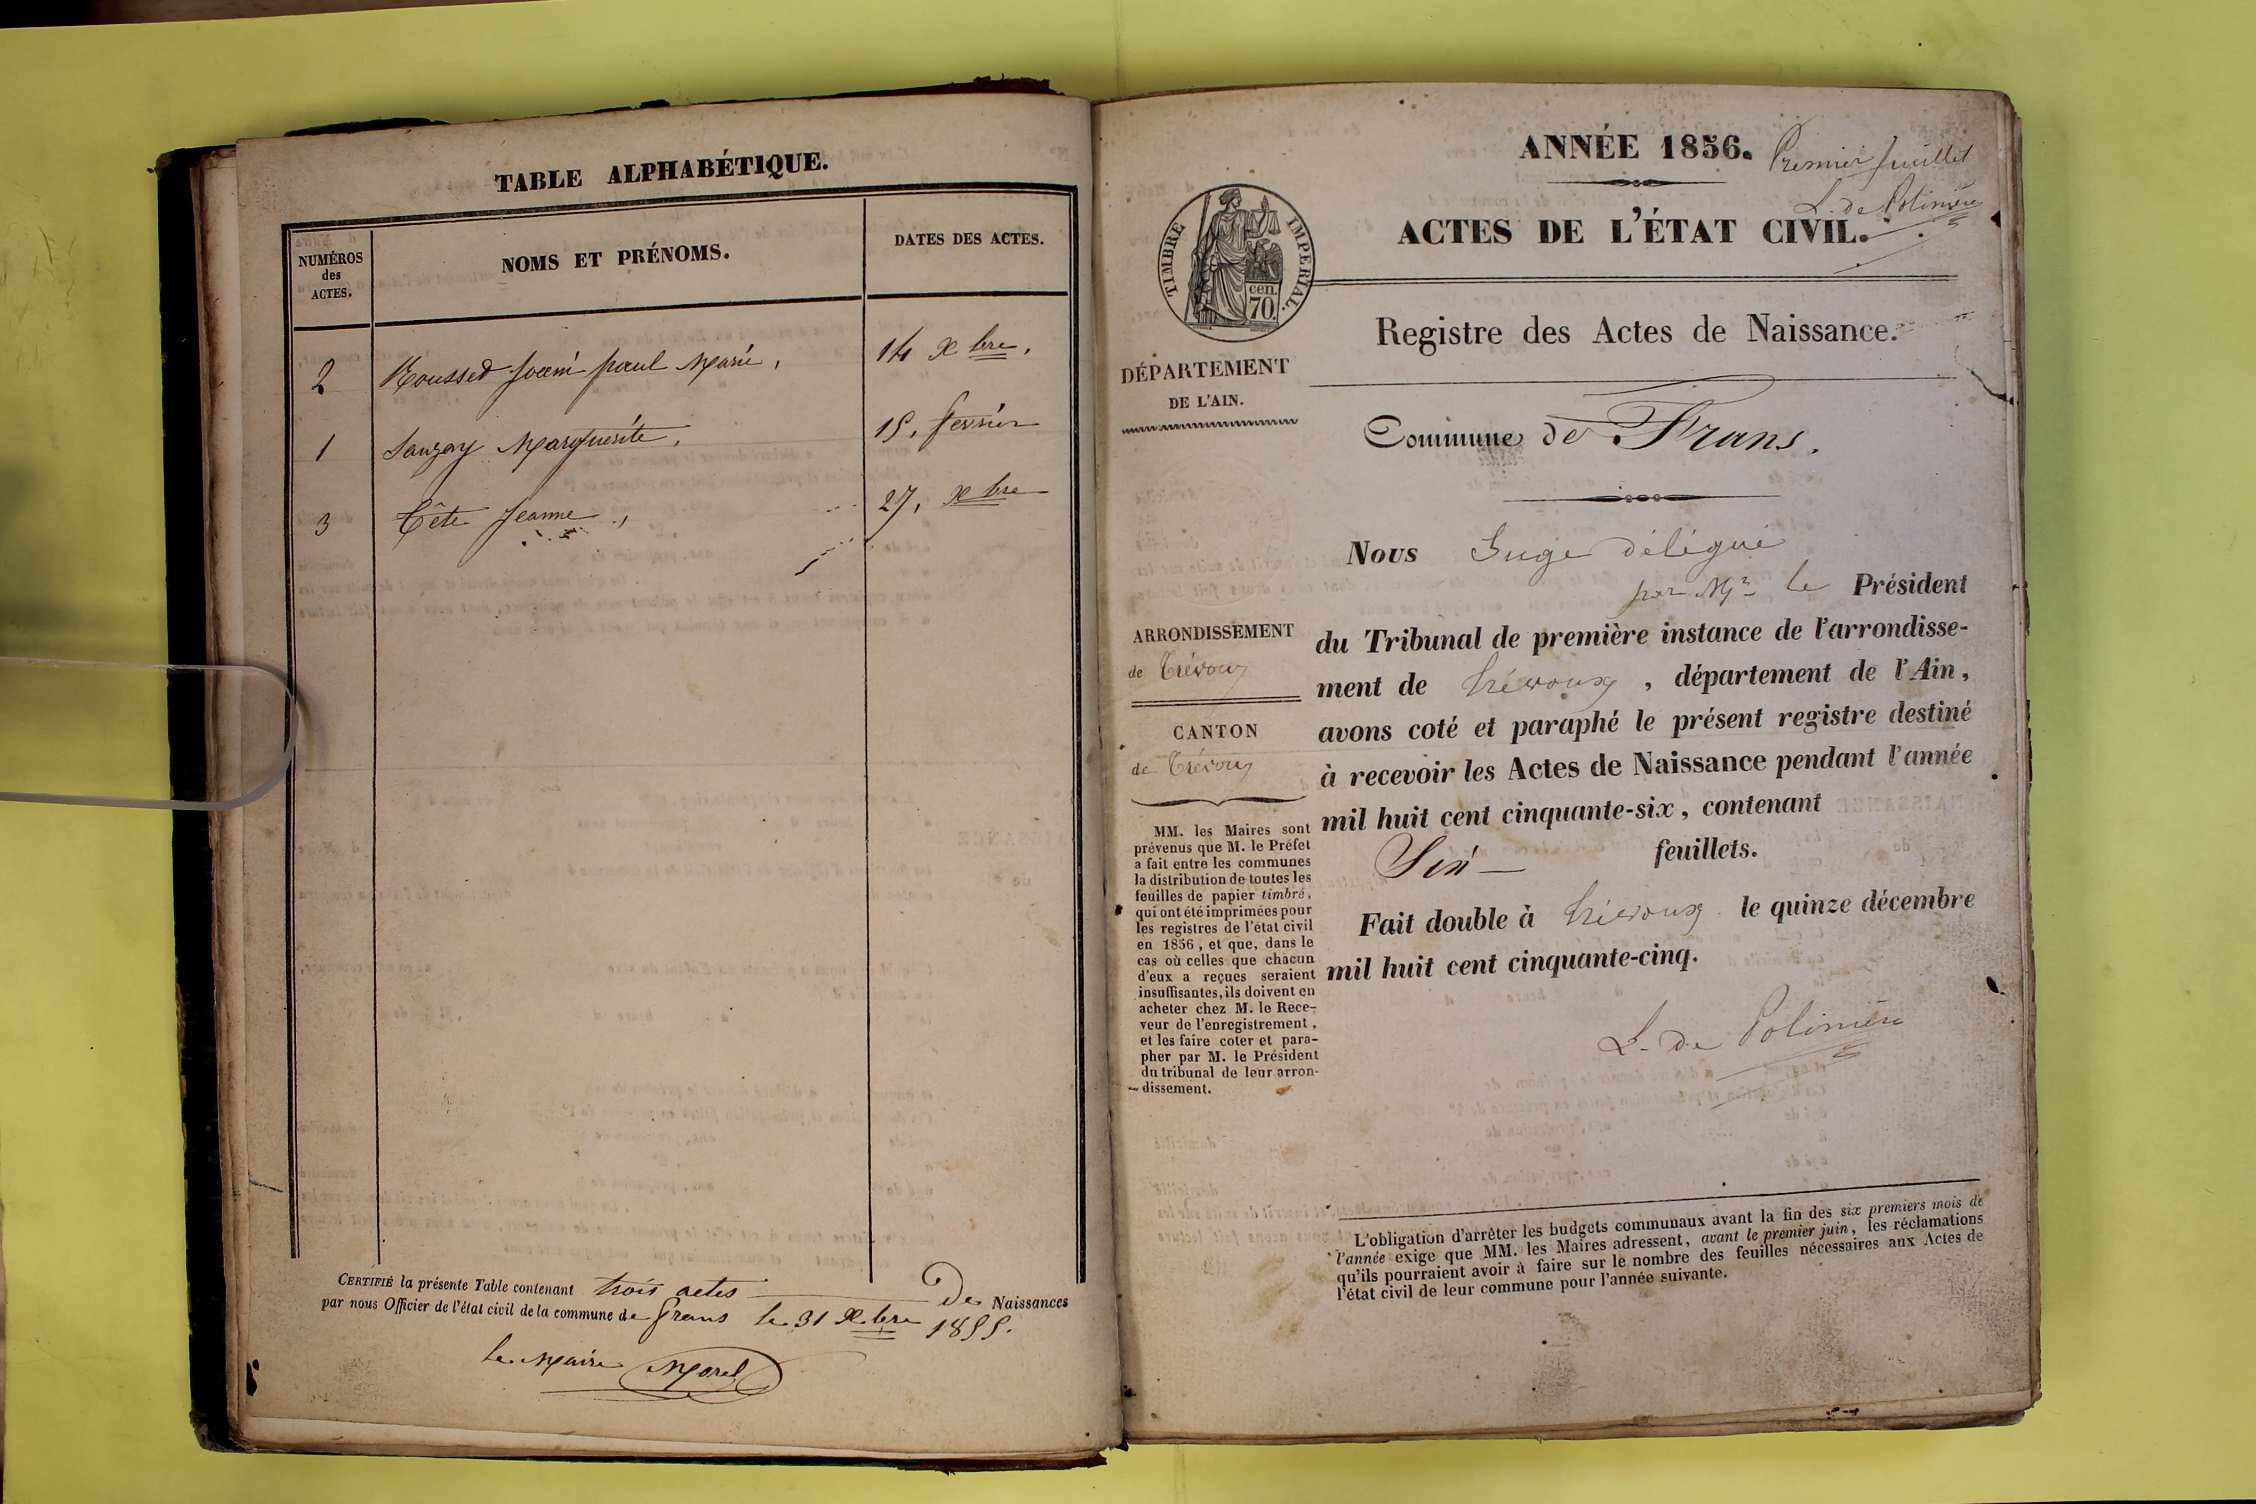 TABLE ALPHABÉTIQUE.
NUMÉROS
des
ACTES.
NOMS ET PRÉNOMS.
DATES DES ACTES.
2 Rousset paul Marie, 14 xbre.
1 Sauzay Marguerite, 15, fevrier
3 Tête Jeanne, 27, xbre
CERTIFIÉ la présente Table contenant trois actes De Naissances
par nous Officier de l'état civil de la commune de frans le 31 Xbre 1855.
le Maire Morel
ANNÉE 1856.
Premier feuillet
L. de Polinière
ACTES DE L'ÉTAT CIVIL.
TIMBRE IMPERIAL.
cen.
70
Registre des Actes de Naissance.
DÉPARTEMENT
DE L'AIN.
Commune de Frans.
Nous Juge délégué
par Mr le Président
du Tribunal de première instance de l'arrondisse-
ment de trévoux, département de l'Ain,
avons coté et paraphé le présent registre destiné
à recevoir les Actes de Naissance pendant l'année
mil huit cent cinquante-six, contenant
Six feuillets.
Fait double à trévoux le quinze décembre
mil huit cent cinquante-cinq.
L. de Polinière
ARRONDISSEMENT
de Trévoux
CANTON
de Trévoux
MM. les Maires sont
prévenus que M. le Préfet
a fait entre les communes
la distribution de toutes les
feuilles de papier timbré,
qui ont été imprimées pour
les registres de l'état civil
en 1856, et que, dans le
cas où celles que chacun
d'eux a reçues seraient
insuffisantes, ils doivent en
acheter chez M. le Rece-
veur de l'enregistrement,
et les faire coter et para-
pher par M. le Président
du tribunal de leur arron-
dissement.
L'obligation d'arrêter les budgets communaux avant la fin des six premiers mois de
l'année exige que MM. les Maires adressent, avant le premier juin, les réclamations
qu'ils pourraient avoir à faire sur le nombre des feuilles nécessaires aux Actes de
l'état civil de leur commune pour l'année suivante.